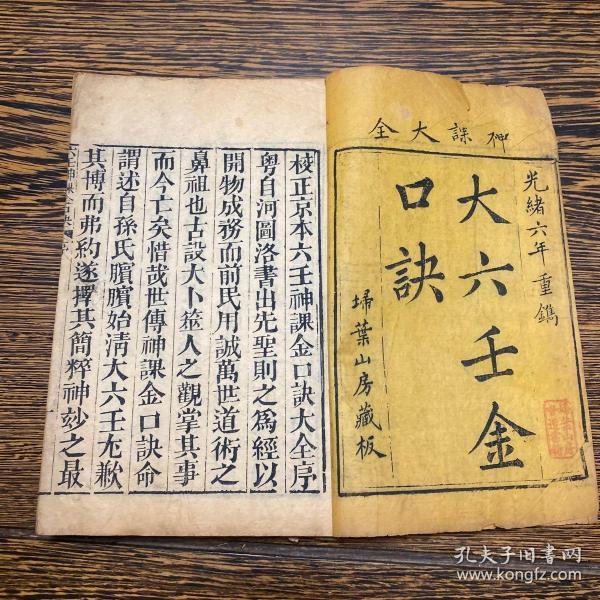 神課大全
光緒六年重鐫
大六壬金
口訣
埽葉山房藏板
校正京本六壬神課金口訣大全序
粵自河圖洛書出先聖則之為經以
開物成務而前民用誠萬世道術之
鼻祖也古設大卜簭人之觀掌其事
而今亡矣惜哉世傳神課金口訣命
謂述自孫氏臏臏始清大六壬尤歉
其博而弗約遂擇其簡粹神妙之最
孔夫子旧书网
www.kongfz.com